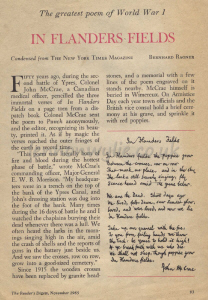 The greatest poem of World War I
IN FLANDERS FIELDS
Condensed from THE NEW YORK TIMES MAGAZINE
FIFTY YEARS AGO, during the sec-
ond battle of Ypres, Colonel
John McCrae, a Canadian
medical officer, pencilled the three
immortal verses of In Flanders
Fields on a page torn from a dis-
patch book. Colonel McCrae sent
the poem to Punch anonymously,
and the editor, recognizing its beau-
ty, printed it. As if by magic the
verses reached the outer fringes of
the earth in record time.
"This poem was literally born of
fire and blood during the hottest
phase of battle," wrote McCrae's
commanding officer, Major-General
E. W. B. Morrison. "My headquar-
ters were in a trench on the top of
the bank of the Ypres Canal, and
John's dressing station was dug into
the foot of the bank. Many times
during the 16 days of battle he and I
watched the chaplains burying their
dead whenever there was a lull. We
often heard the larks in the
singing high in the air, amid
the crash of shells and the reports of
guns in the battery just beside us.
And we saw the crosses, row on row,
grow into a good-sized cemetery."
Since 1915 the wooden crosses
have been replaced by granite head-
stones, and a memorial with a few
lines of the poem engraved on it
stands nearby. McCrae himself is
buried in Wimereux. On Armistice
Day each year town officials and the
British vice consul hold a brief cere-
mony at his grave, and sprinkle it
with red poppies.
In Flanders Fields
In Flanders fields the poppies grow
Between the crosses, row on row
That mark our place; and in the sky
The larks, still bravely singing, fly
Scarce heard amid the guns below.
We are the Dead. Short days ago
We lived, felt dawn, saw sunset glow,
Loved, and were loved, and now we lie
In Flanders fields.
Take up our quarrel with the foe:
To you from failing hands we throw
The torch; be yours to hold it high!
If ye break faith with us who die
We shall not sleep, though poppies grow
In Flanders fields
John McCrae
The Reader's Digest, November 1965